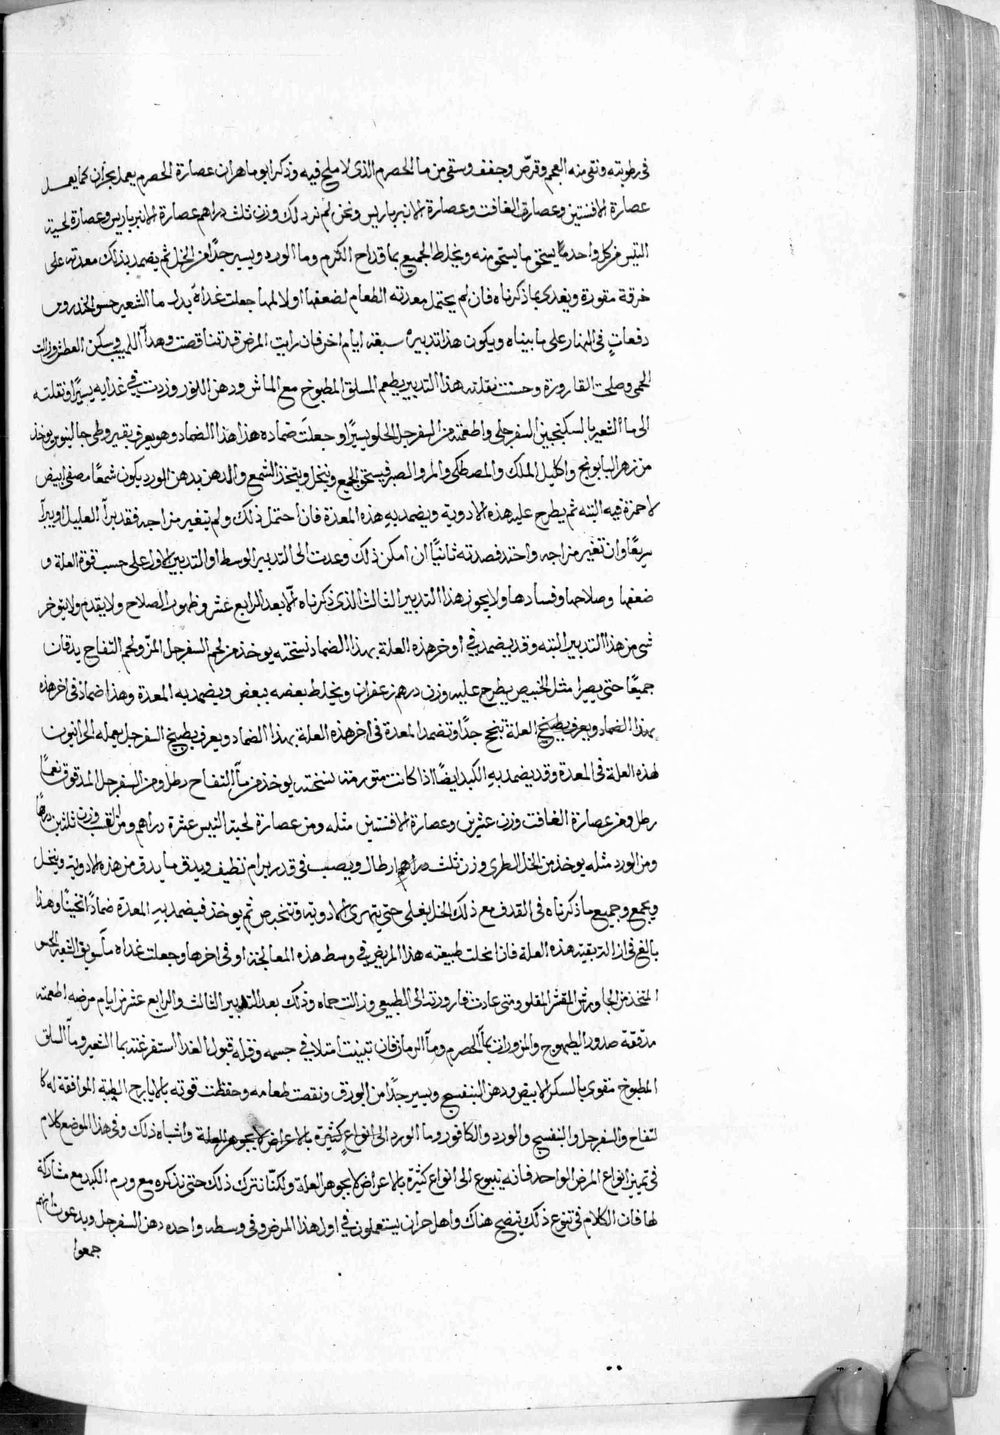 فى رطوبته ونقى منه العجم وقرّص وجفف وسقى من ما الحصرم الذى لا ملح فيه وذكر ابو ماهر ان عصارة الحصرم يعمل بحران كما يعمل
عصارة الافسنتين وعصارة الغافت وعصارة الانبرباريس ونحن لم نر ذلك وزن ثلث دراهم عصارة الانبرباريس وعصارة لحية
التيس من كل واحد ما يسحق ما يستحق منه ويخلط الجميع بما قداح الكرم وما الورد ويسير جدًا من الخل ثم يضمد بذلك معدته على
خرقة مقورة ويغدى بما ذكرناه فان لم يحتمل معدته الطعام لضعفها او لالمها جعلت غداه بدل ما الشعير حسو الخندروس
دفعاتٍ فى النهار على ما بيناه ويكون هذا تدبيره سبعة ايام اخر فان رايت المرض قد تناقصت وهدأ اللهيب وسكن العطش وزالت
الحمى وصلحت القارورة وحسنت نقلته هذا التدبير يطعم السلق المطبوخ مع الماش ودهن اللوز وزيت فى غدايه يسيرًا ونقلته
الى ما الشعير بالسكنجبين السفرجلى واطعمته من السفرجل الحلو يسيرًا وجعلت ضماده هذا هذا الضماد وهو يعرف بقيروطى جالينوس يوخذ
من زهر البابونج واكليل الملك والمصطكى والمر والصبر يسحق الجميع وينخل ويتخذ الشمع والدهن بدهن الورد يكون شمعًا مصفى ابيض
لا حمرة فيه البته ثم يطرح عليه هذه الادوية ويضمد به هذه المعدة فان احتمل ذلك ولم يتغير مزاجه فقد برأ العليل او يبرأ
سريعًا وان تغير مزاجه واحتد فصدته ثانيًا ان امكن ذلك وعدت الى التدبير الوسط او التدبير الاول على حسب قوة العلة و
ضعفها وصلاحها وفسادها ولا يجوز هذا التدبير الثالث الذى ذكرناه الا بعد الرابع عشر وظهور الصلاح ولا يقدم ولا يتوخر
شى من هذا التدبير البته وقد يضمد فى اوخر هذه العلة بهذا الضماد نسخته يوخذ من لحم السفرجل المزّ ولحم التفاح يدقان
جميعًا حتى يصيرا مثل الخبيص يطرح عليه وزن درهم زعفران ويخلط بعضه ببعض ويضمد به المعدة وهذا ضماد فى اخر هذه
بهذا الضماد ويعرف بطبيخ العلة ينجح جدًا وتضمد المعدة فى اخر هذه العلة بهذا الضماد ويعرف بطبيخ السفرجل يعمله الحرانيون
لهذه العلة فى المعدة وقد يضمد به الكبد ايضًا اذا كانت متورمة نسخته يوخذ من ما التفاح رطل ومن السفرجل المدقوق نعمًا
رطل ومن عصارة الغافت وزن عشرين وعصارة الافسنتين مثله ومن عصارة لحية التيس عشرة دراهم ومن القسب وزن ثلاثين درهمًا
ومن الورد مثله يوخذ من الخل الطرى وزن ثلث دراهم ارطال ويصب فى قدر برام نظيف ويدق ما يدق من هذه الادوية وينخل
ويجمع وجميع ما ذكرناه فى القدف مع ذلك الخل يغلى حتى يتهرى الادوية وتتخبص ثم يوخذ فيضمد به المعدة ضمادًا ثخينًا وهذا
بالغ فى ازالة بقية هذه العلة فاذا انحلت طبيعته هذا المريض فى وسط هذه المعالجة او فى اخرها وجعلت غداه ما سويق الشعير الخس
المتخذ من الجاورس المقشر المقلو ومتى عادت قارورته الى الطبيعى وزالت حماه وذلك بعد التدبير الثالث والرابع عشر من ايام مرضه اطعمته
مدققة صدور الطيهوج والمزورات بما الحصرم وما الرمان فان تبينت امتلا فى جسمه وقلة قبول الغدا استفرغته بما الشعير وما السلق
المطبوخ مقوى بالسكر الابيض ودهن البنفسج ويسير جدًا من البورق ونقصت طعامه وحفظت قوته بالارايح الطيبة الموافقة له كا
لتفاح والسفرجل والبنفسج والورد والكافور وما الورد الى انواع كثيرة بالاعراض لا بجوهر العلة واشباه ذلك وفى هذا الموضع كلام
فى تميز انواع المرض الواحد فانه يتنوع الى انواع كثيرة بالاعراض لا بجوهر العلة ولكنّا نترك ذلك حتى نذكره مع ورم الكبد مع مشاركة
لها فان الكلام فى تنوع ذلك يتضح هناك واهل حران يستعملون فى اول هذا المرض وفى وسطه واحده دهن السفرجل ويدعون انهم
جمعوا